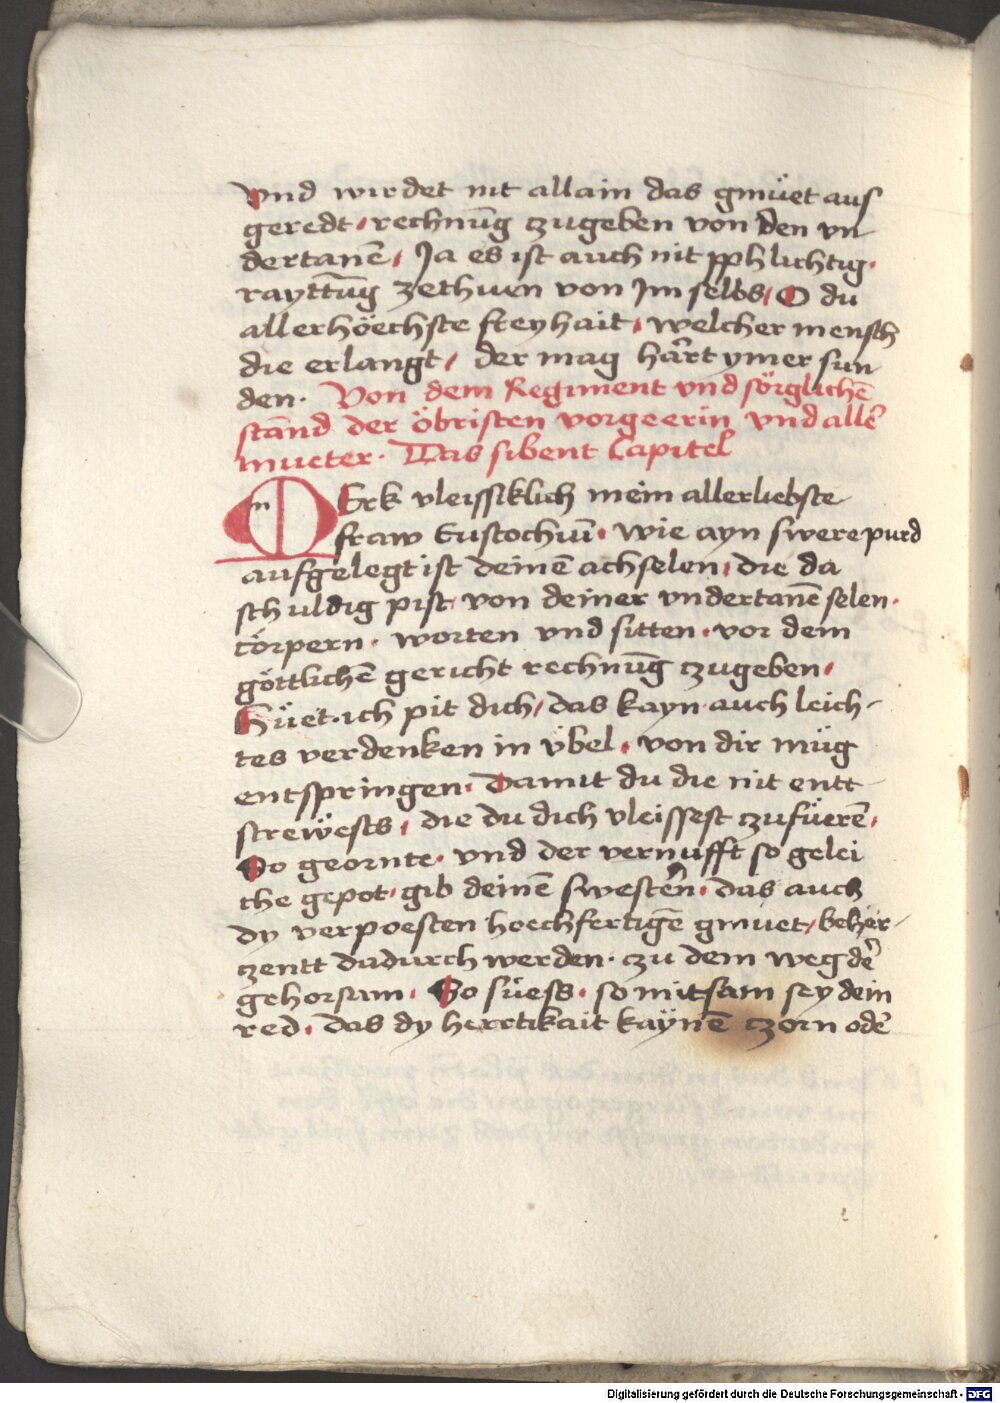 Vnd wirdet nit allain das gmüet aus
geredt / rechnūg czugeben von den vn
dertanē / Ja es ist auch nit pphlichtig ·
rayttūg zethuen von Jm selbs / O du
allerhöechste freyhait / welcher mensch
die erlangt / der mag hart ymer sun
den · Von dem Regiment vnd sörglichē
stannd der öbristen vorgeerin vnd aller
mueter · Das sibent Capitel
MErk vleissiklich mein allerliebste
fraw Eustochiū · wie ayn swere purd
aufgelegt ist deinē achselen / die da
schuldig pist / von deiner vndertanē selen ·
cörpern · worten vnd sitten · vor dem
göttlichē gericht rechnūg czugeben /
Hüet · ich pit dich / das kayn auch leich-
tes verdenken in vbel / von dir müg
entspringen · Damit du die nit entt-
strewests / die du dich vleissest czufüerē /
So geornte · vnd der vernufft so gelei
che gepot · gib deinē swestern · das auch
dy verpoesten hoechfertigē gmuet / beher-
czentt dadurch werden · czu dem weg der
gehorsam · So süess · so mitsam sey dein
red · das dy herrtikait kaynē czorn oder
Digitalisierung gefördert durch die Deutsche Forschungsgemeinschaft - DFG